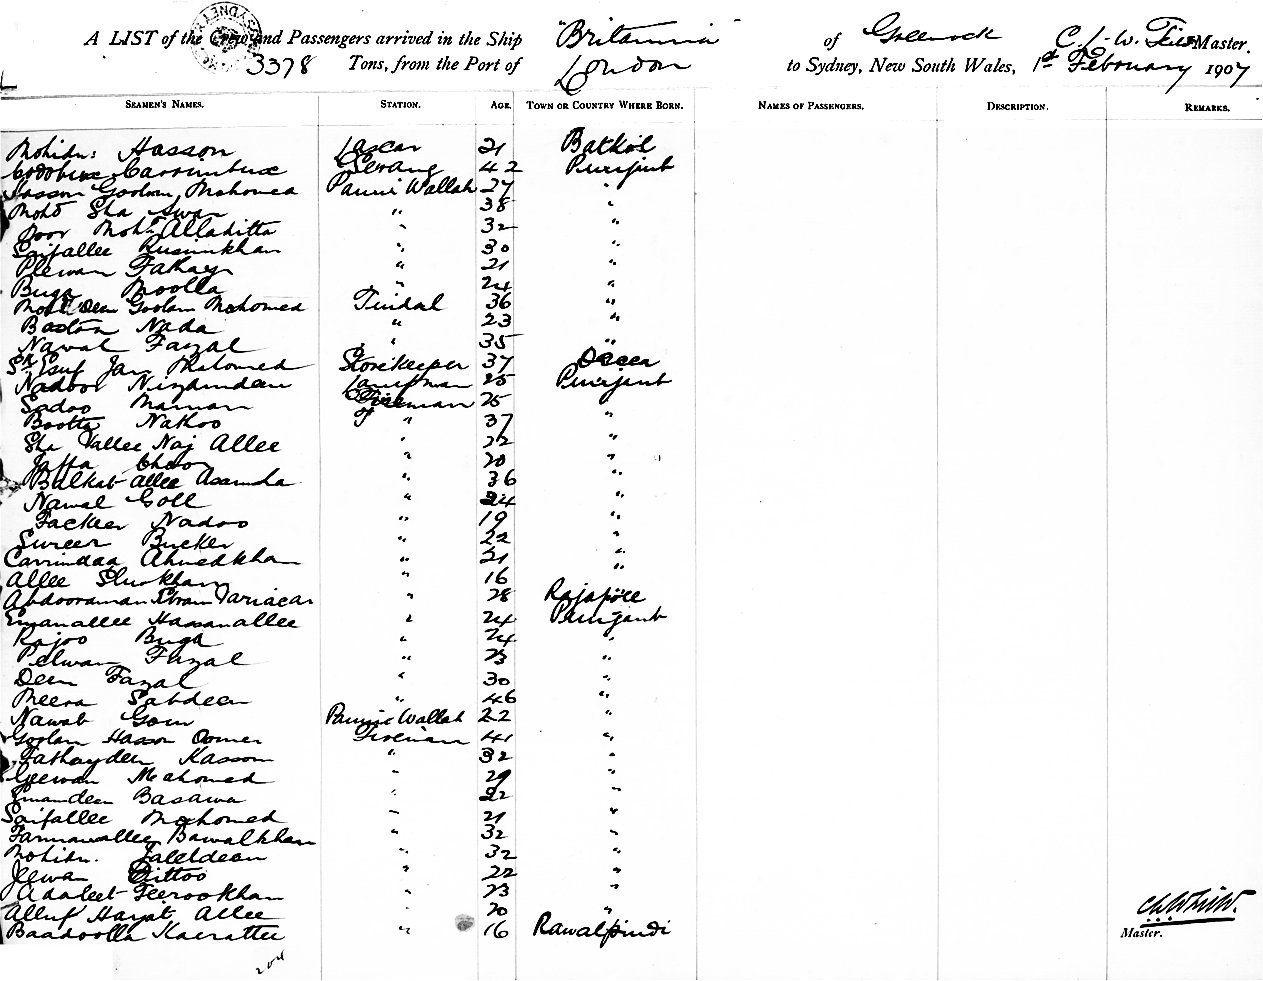 A LIST of the Crew and Passengers arrived in the Ship "Britannia" of Greenock C. J. W. Master.
3378 Tons, from the Port of London to Sydney, New South Wales, 1st February 1907
SEAMEN'S NAMES. STATION. AGE. TOWN OR COUNTRY WHERE BORN. NAMES OF PASSENGERS. DESCRIPTION. REMARKS.
Mohidn: Hasson Lascar 21
Serang 42 Punjaub
Hasson Goolam Mahomed Paunie Wallah 27 "
Mohd Sha Awan " 38 "
Noor Mohd Alladitta " 32 "
Saifallee " 30 "
Plewan Fathay " 21 "
Buga Moolla " 24 "
Mohd Deen Goolam Mahomed Tindal 36 "
Bastan Nada " 23 "
Nawal Fazal " 35 "
Jan Mahomed Storekeeper 37 Dacca
Nadoo Nizamdeen Lampman 25 Punjaub
Sadoo Maman Fireman 25 "
Bootta Nathoo " 37 "
Sha Vallee Naj Allee " 22 "
Jaffa " 20 "
Bulkat Allee " 36 "
Nawal Goll " 24 "
Fackeer Nadoo " 19 "
Bucker " 22 "
Carrimdaa Ahmedkhan " 21 "
Allee " 16 "
Abdooraman " 28 Rajapore
Emanallee Hassanallee " 24 Punjaub
Rajoo Buga " 24 "
Pelwan Fazal " 23 "
Deen Fazal " 30 "
Meera Sabdeen " 46 "
Nawab Paunie Wallah 22 "
Goolam Hasson Oomer Fireman 41 "
Fathaydeen Kassom " 32 "
Geewan Mahomed " 29 "
Emandeen Basawa " 22 "
Saifallee Mahomed " 21 "
Bawalkhan " 32 "
Mohidn. Jaleldeen " 32 "
Jeewan Dittoo " 22 "
Adaleet Feerookhan " 23 "
Alluf Hayat Allee " 20 "
Baadoolla " 16 Rawalpindi
Master.
204